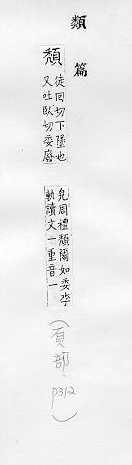 類篇
頹
徒回切下墜也
又吐臥切委廢
皃周禮頹爾如委李
軌讀文一重音一
(頁部, p312)